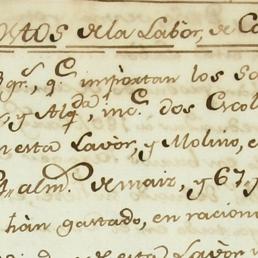 ostos de la Labòr, de Ca
gr.s, q.e impòrtan los So
, y Alq.da, inc.s dos Escol
n esta Lavòr, y Molino, e
alm.s de maiz, y 67 f
han gastado, en racion
de esta Lavòr